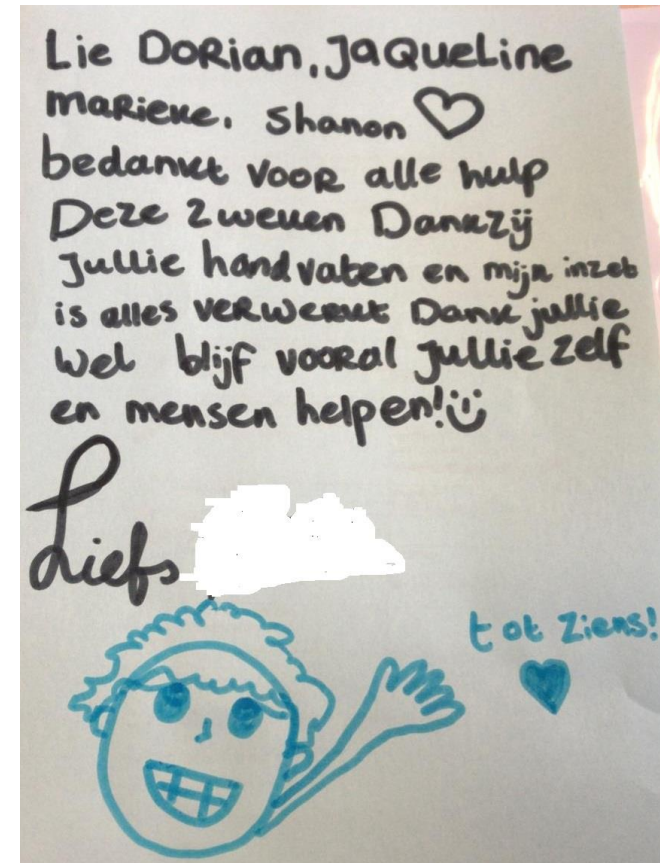 Lie Dorian, Jaqueline
Marieke, Shanon ♡
bedankt voor alle hulp
Deze 2 weken Dankzij
Jullie handvaten en mijn inzet
is alles verwerkt Dank jullie
wel blijf vooral Jullie zelf
en mensen helpen!
Liefs
tot ziens!